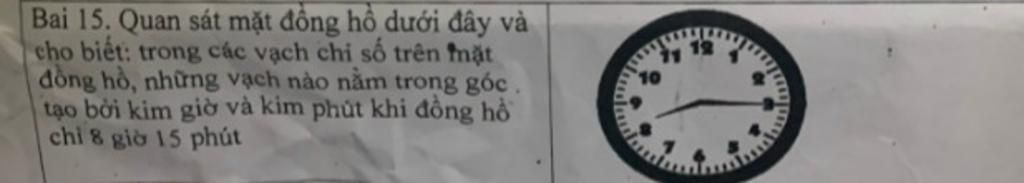 Bai 15. Quan sát mặt đồng hồ dưới đây và
cho biết: trong các vạch chỉ số trên mặt
đồng hồ, những vạch nào nằm trong góc
tạo bởi kim giờ và kim phút khi đồng hồ
chỉ 8 giờ 15 phút
12
11
1
10
2
9
3
8
4
7
5
6